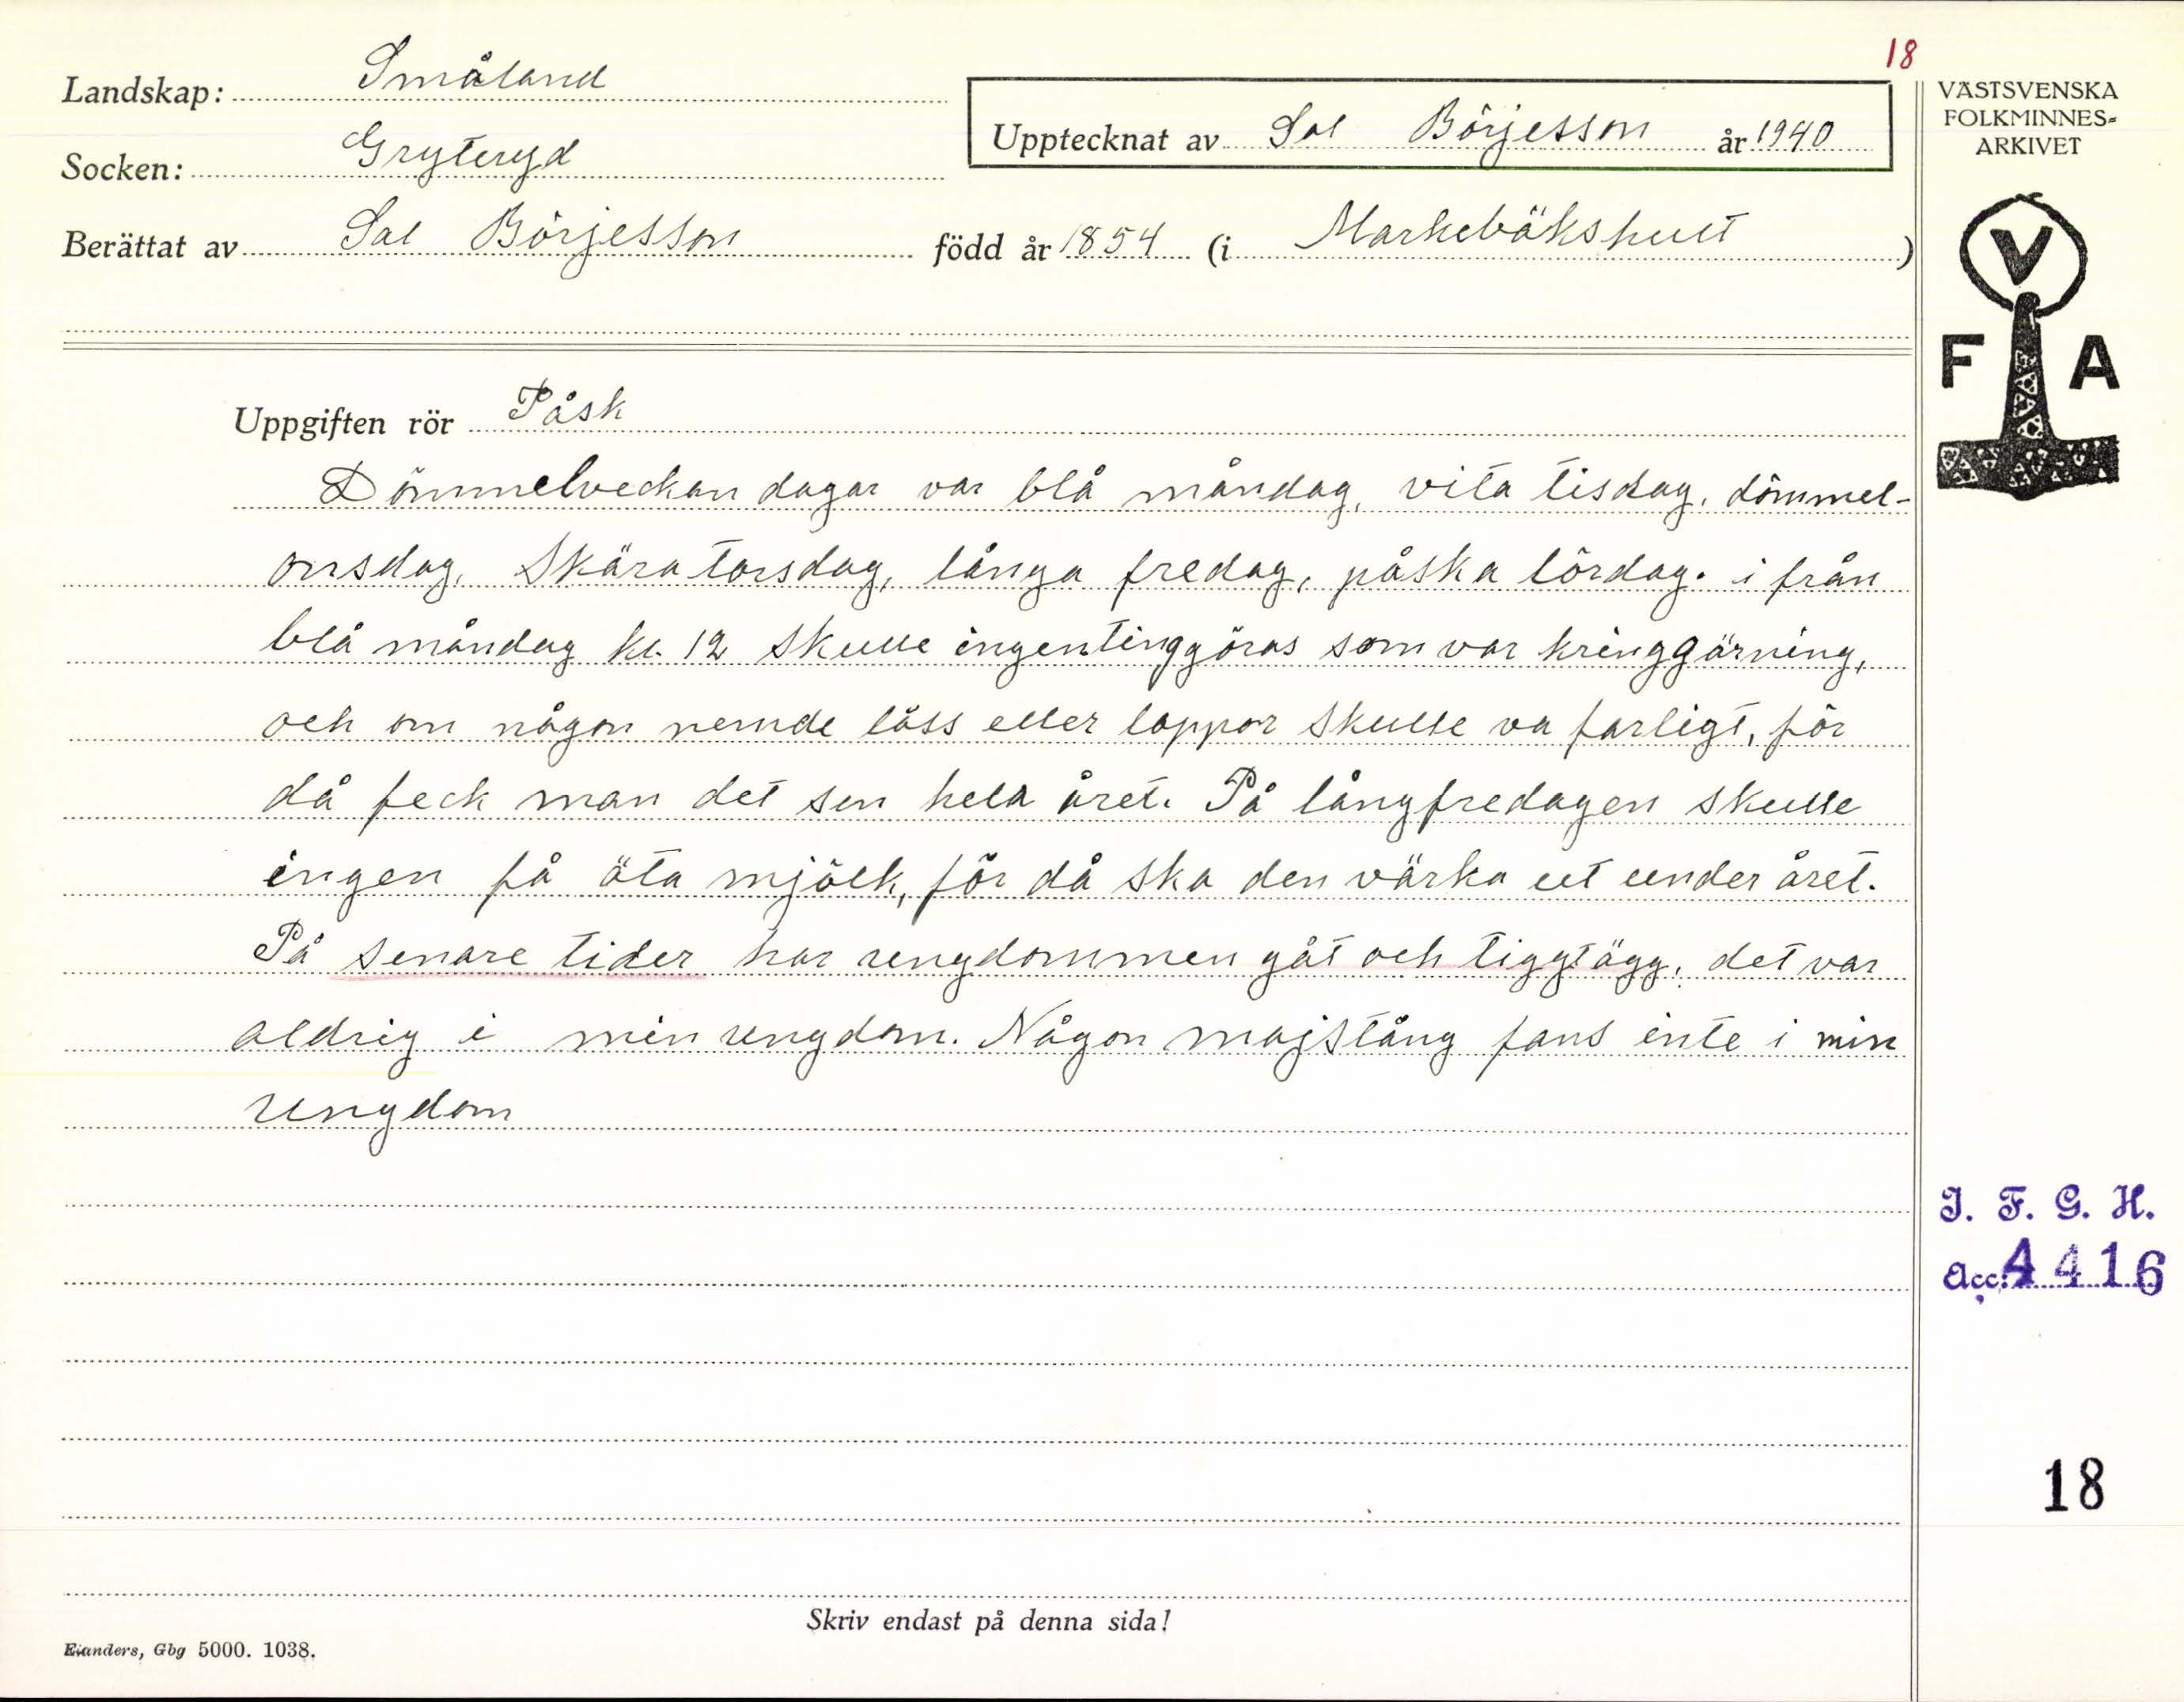 18
Landskap: Småland
Upptecknat av Sal Börjesson år 1940
VÄSTSVENSKA
FOLKMINNES-
ARKIVET
Socken: Gryteryd
Berättat av Sal Börjesson född år 1854 (i Markebäkshult)
V
F A
Uppgiften rör Påsk
Dömmelveckan dagar var blå måndag, vita tisdag, dömmel-
onsdag, Skära torsdag, långa fredag, påska lördag. i från
blå måndag kl. 12 skulle ingenting göras som var kringgärning,
och om någon nemde löss eller loppor skulle va farligt, för
då feck man det sen hela året. På långfredagen skulle
ingen få äta mjölk, för då ska den värka ut under året.
På senare tider har ungdommen gåt och tiggt ägg, det var
aldrig i min ungdom. Någon majstång fans inte i min
ungdom
I. F. G. H.
Acc: 4416
18
Skriv endast på denna sida!
Elanders, Gbg 5000. 1038.